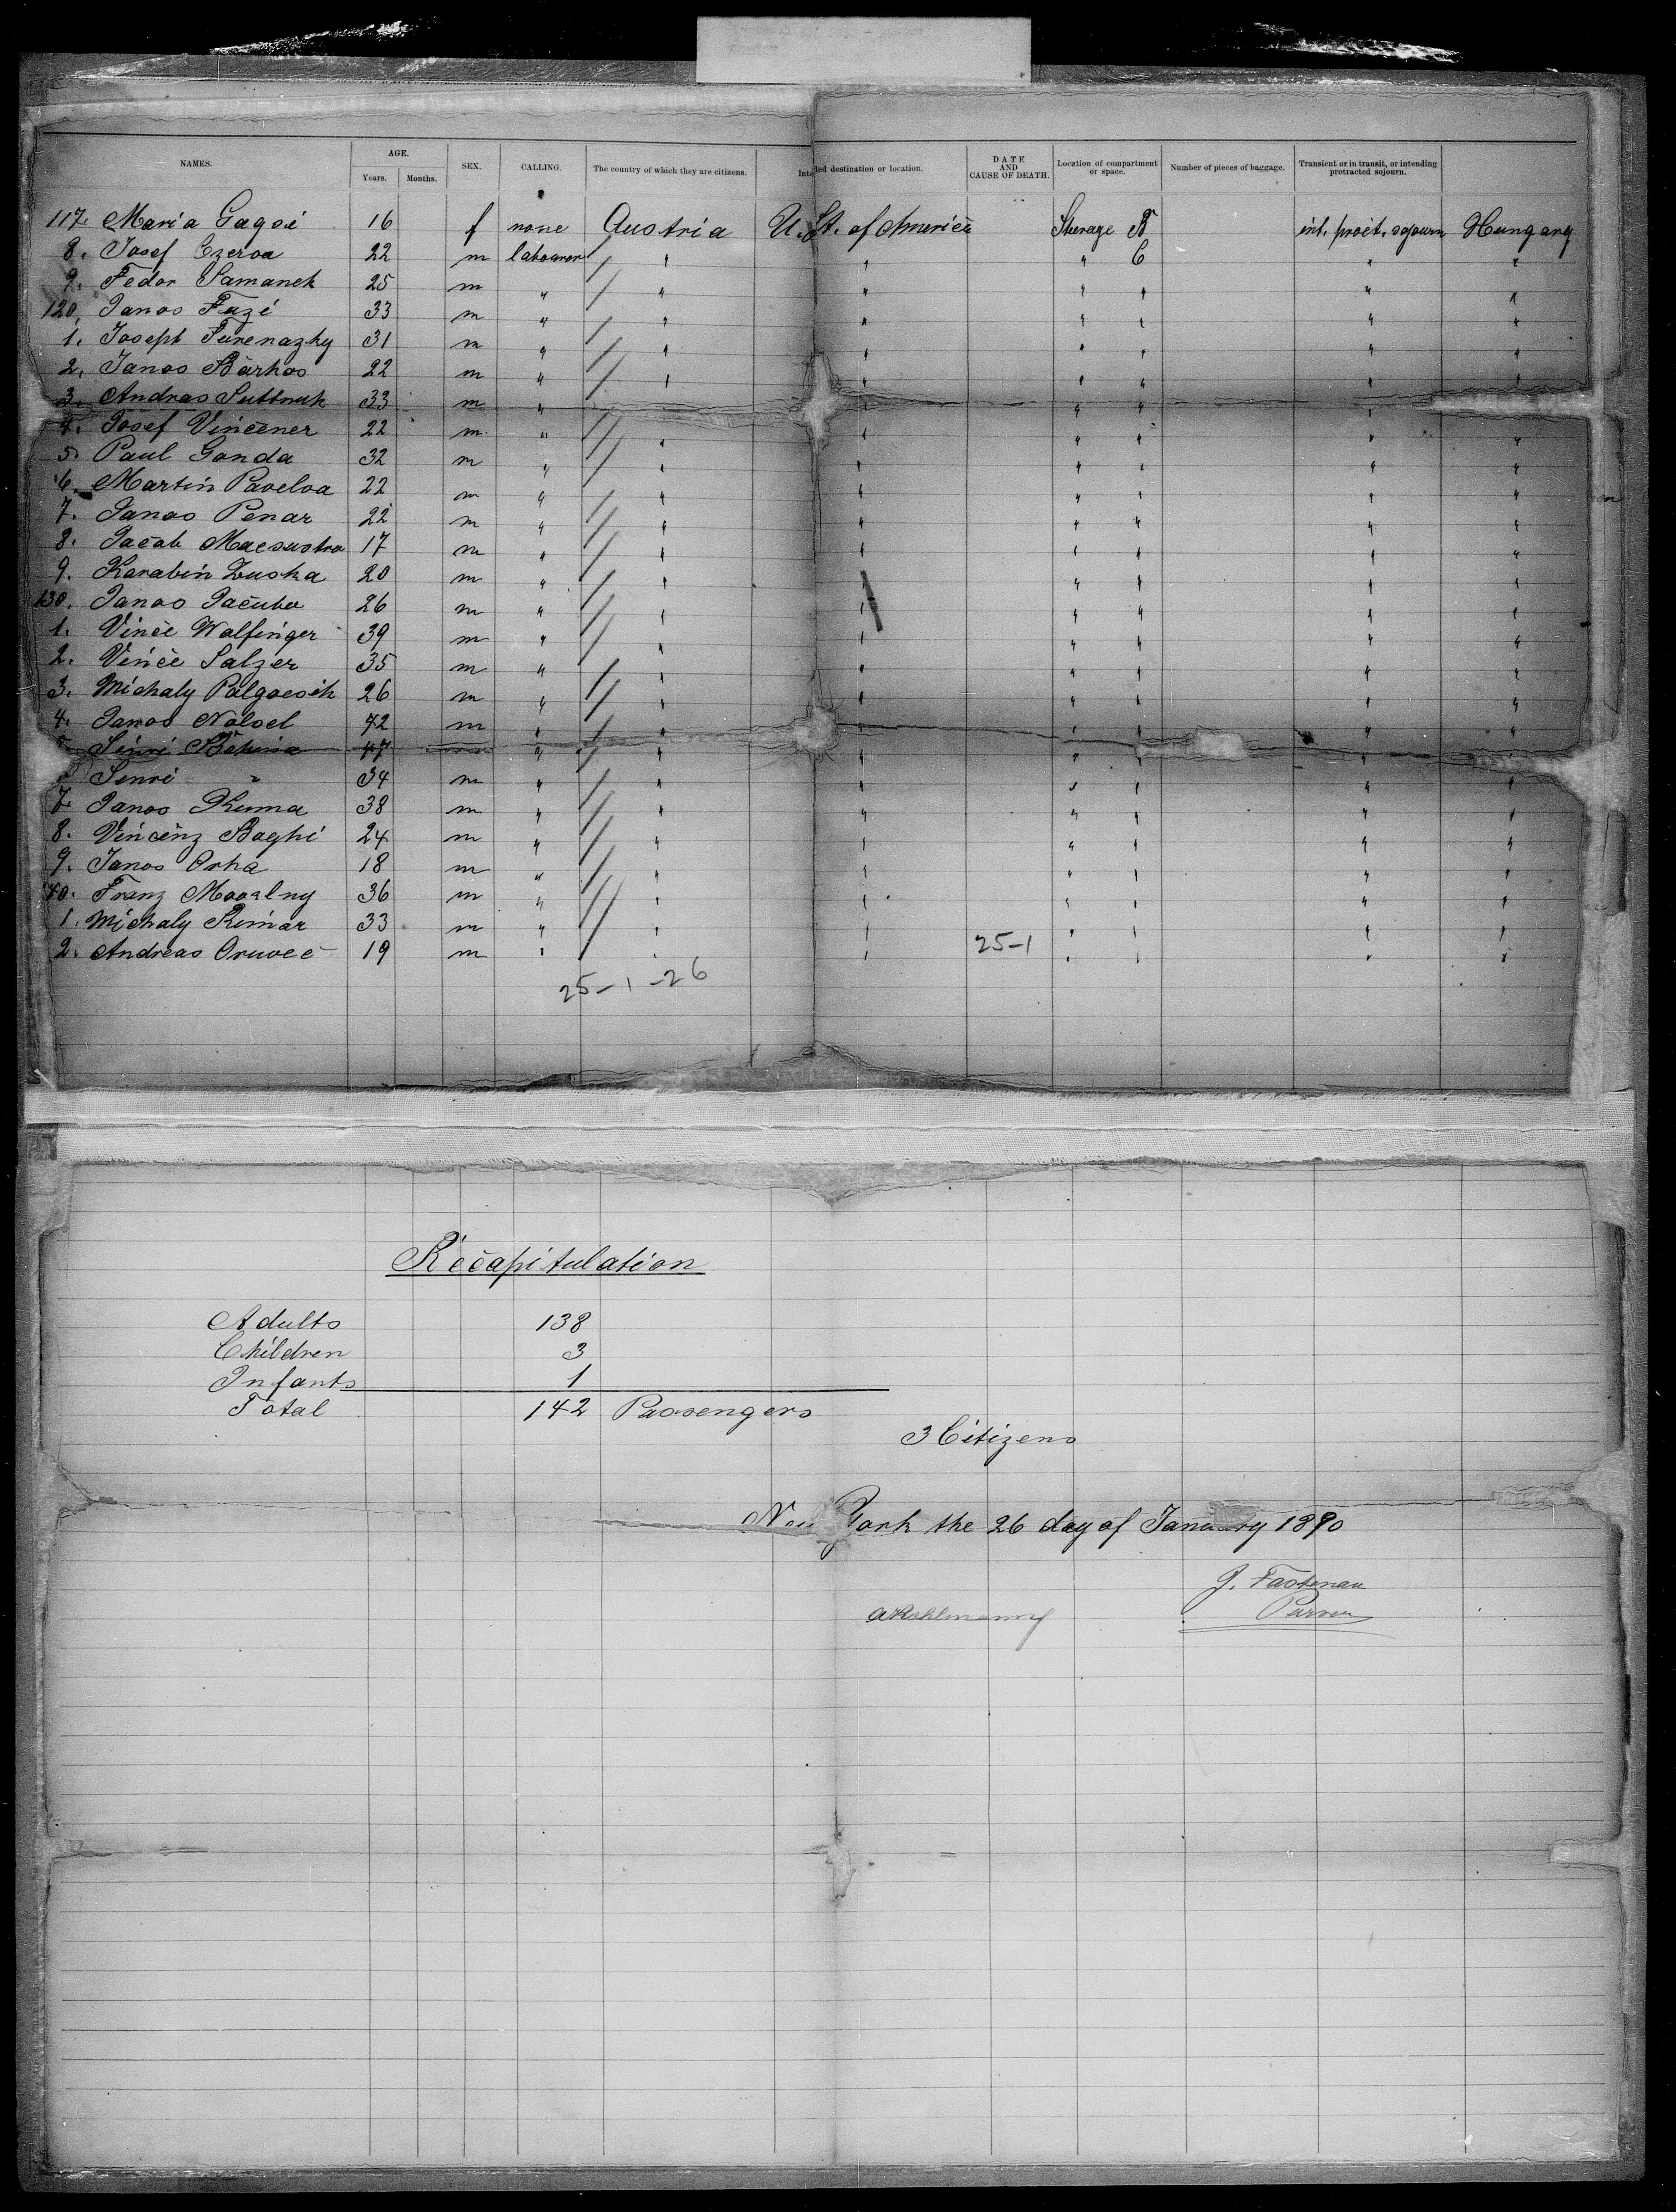 NAMES. AGE. SEX. CALLING. The country of which they are citizens. Intended destination or location. DATE AND CAUSE OF DEATH. Location of compartment or space. Number of pieces of baggage. Transient or in transit, or intending protracted sojourn.
Years. Months.
117. Maria Gagsi 16 f none Austria U. St. of Americe Sterage B int. proct. sojourn Hungary
8. Josef Czeroa 22 m labourer " " " C " "
9. Fedor Samanek 25 m " " " " " " "
120. Janos Fuzé 33 m " " " " " " "
1. Joseph Furenazky 31 m " " " " " " "
2. Janos Barkos 22 m " " " " " " "
3. Andras Suttnuk 33 m " " " " " " "
4. Josef Vincener 22 m " " " " " " "
5. Paul Gonda 32 m " " " " " " "
6. Martin Paveloa 22 m " " " " " " "
7. Janos Penar 22 m " " " " " " "
8. Jacob Macsustra 17 m " " " " " " "
9. Karabin Zuska 20 m " " " " " " "
130. Janos Jacuba 26 m " " " " " " "
1. Vince Walfinger 39 m " " " " " " "
2. Vince Salzer 35 m " " " " " " "
3. Michaly Palgocsik 26 m " " " " " " "
4. Janos Nolsel 42 m " " " " " " "
47 " " " " " " "
Senri " 34 m " " " " " " "
7. Janos Kuma 38 m " " " " " " "
8. Vincenz Baghi 24 m " " " " " " "
9. Janos Orha 18 m " " " " " " "
40. Franz Movalny 36 m " " " " " " "
1. Michaly Rimar 33 m " " " " " " "
2. Andreas Oruvec 19 m " " " 25-1 " " " "
25-1-26
Recapitulation
Adults 138
Children 3
Infants 1
Total 142 Passengers
3 Citizens
New York the 26 day of January 1890
J. Fastenau